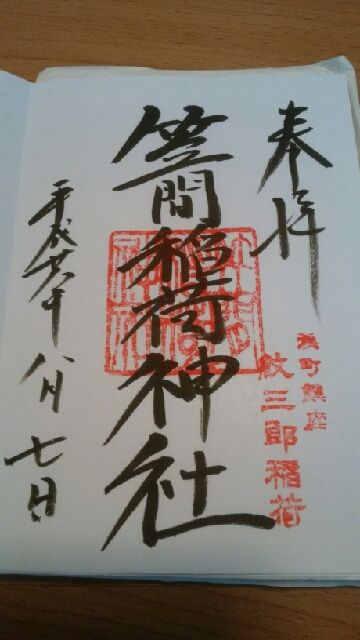 奉拝
浜町鎮座
紋三郎稲荷
笠間稲荷神社
平成廿六年八月七日